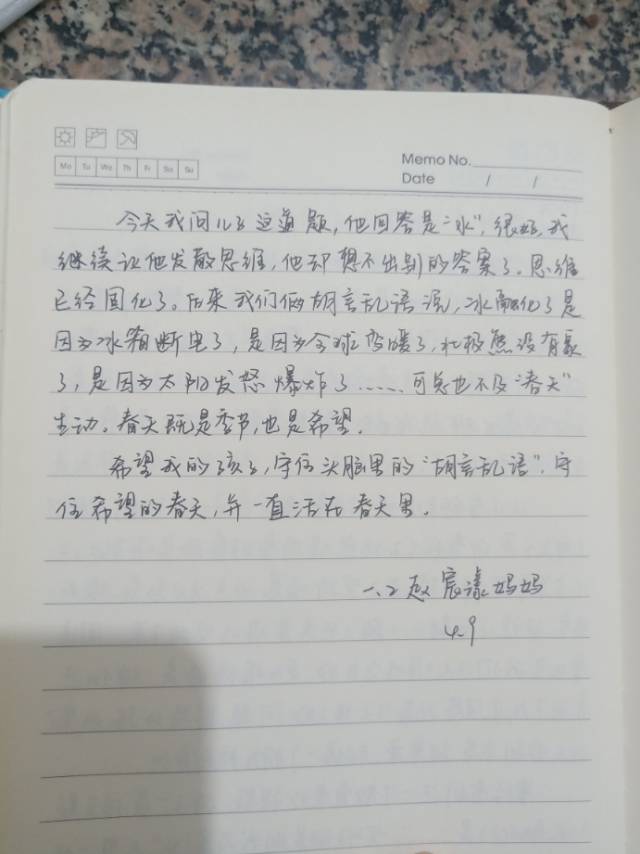 Mo Tu We Th Fr Sa Su
Memo No.
Date / /
今天我问儿子这道题,他回答是“水”,很好,我
继续让他发散思维,他却想不出别的答案了。思维
已经固化了。后来我们俩胡言乱语说,冰融化了是
因为冰箱断电了,是因为全球变暖了,北极熊没有家
了,是因为太阳发怒爆炸了……可总也不及“春天”
生动。春天既是季节,也是希望。
希望我的孩子,守住头脑里的“胡言乱语”,守
住希望的春天,并一直活在春天里。
一.2 赵宸漾妈妈
4.9